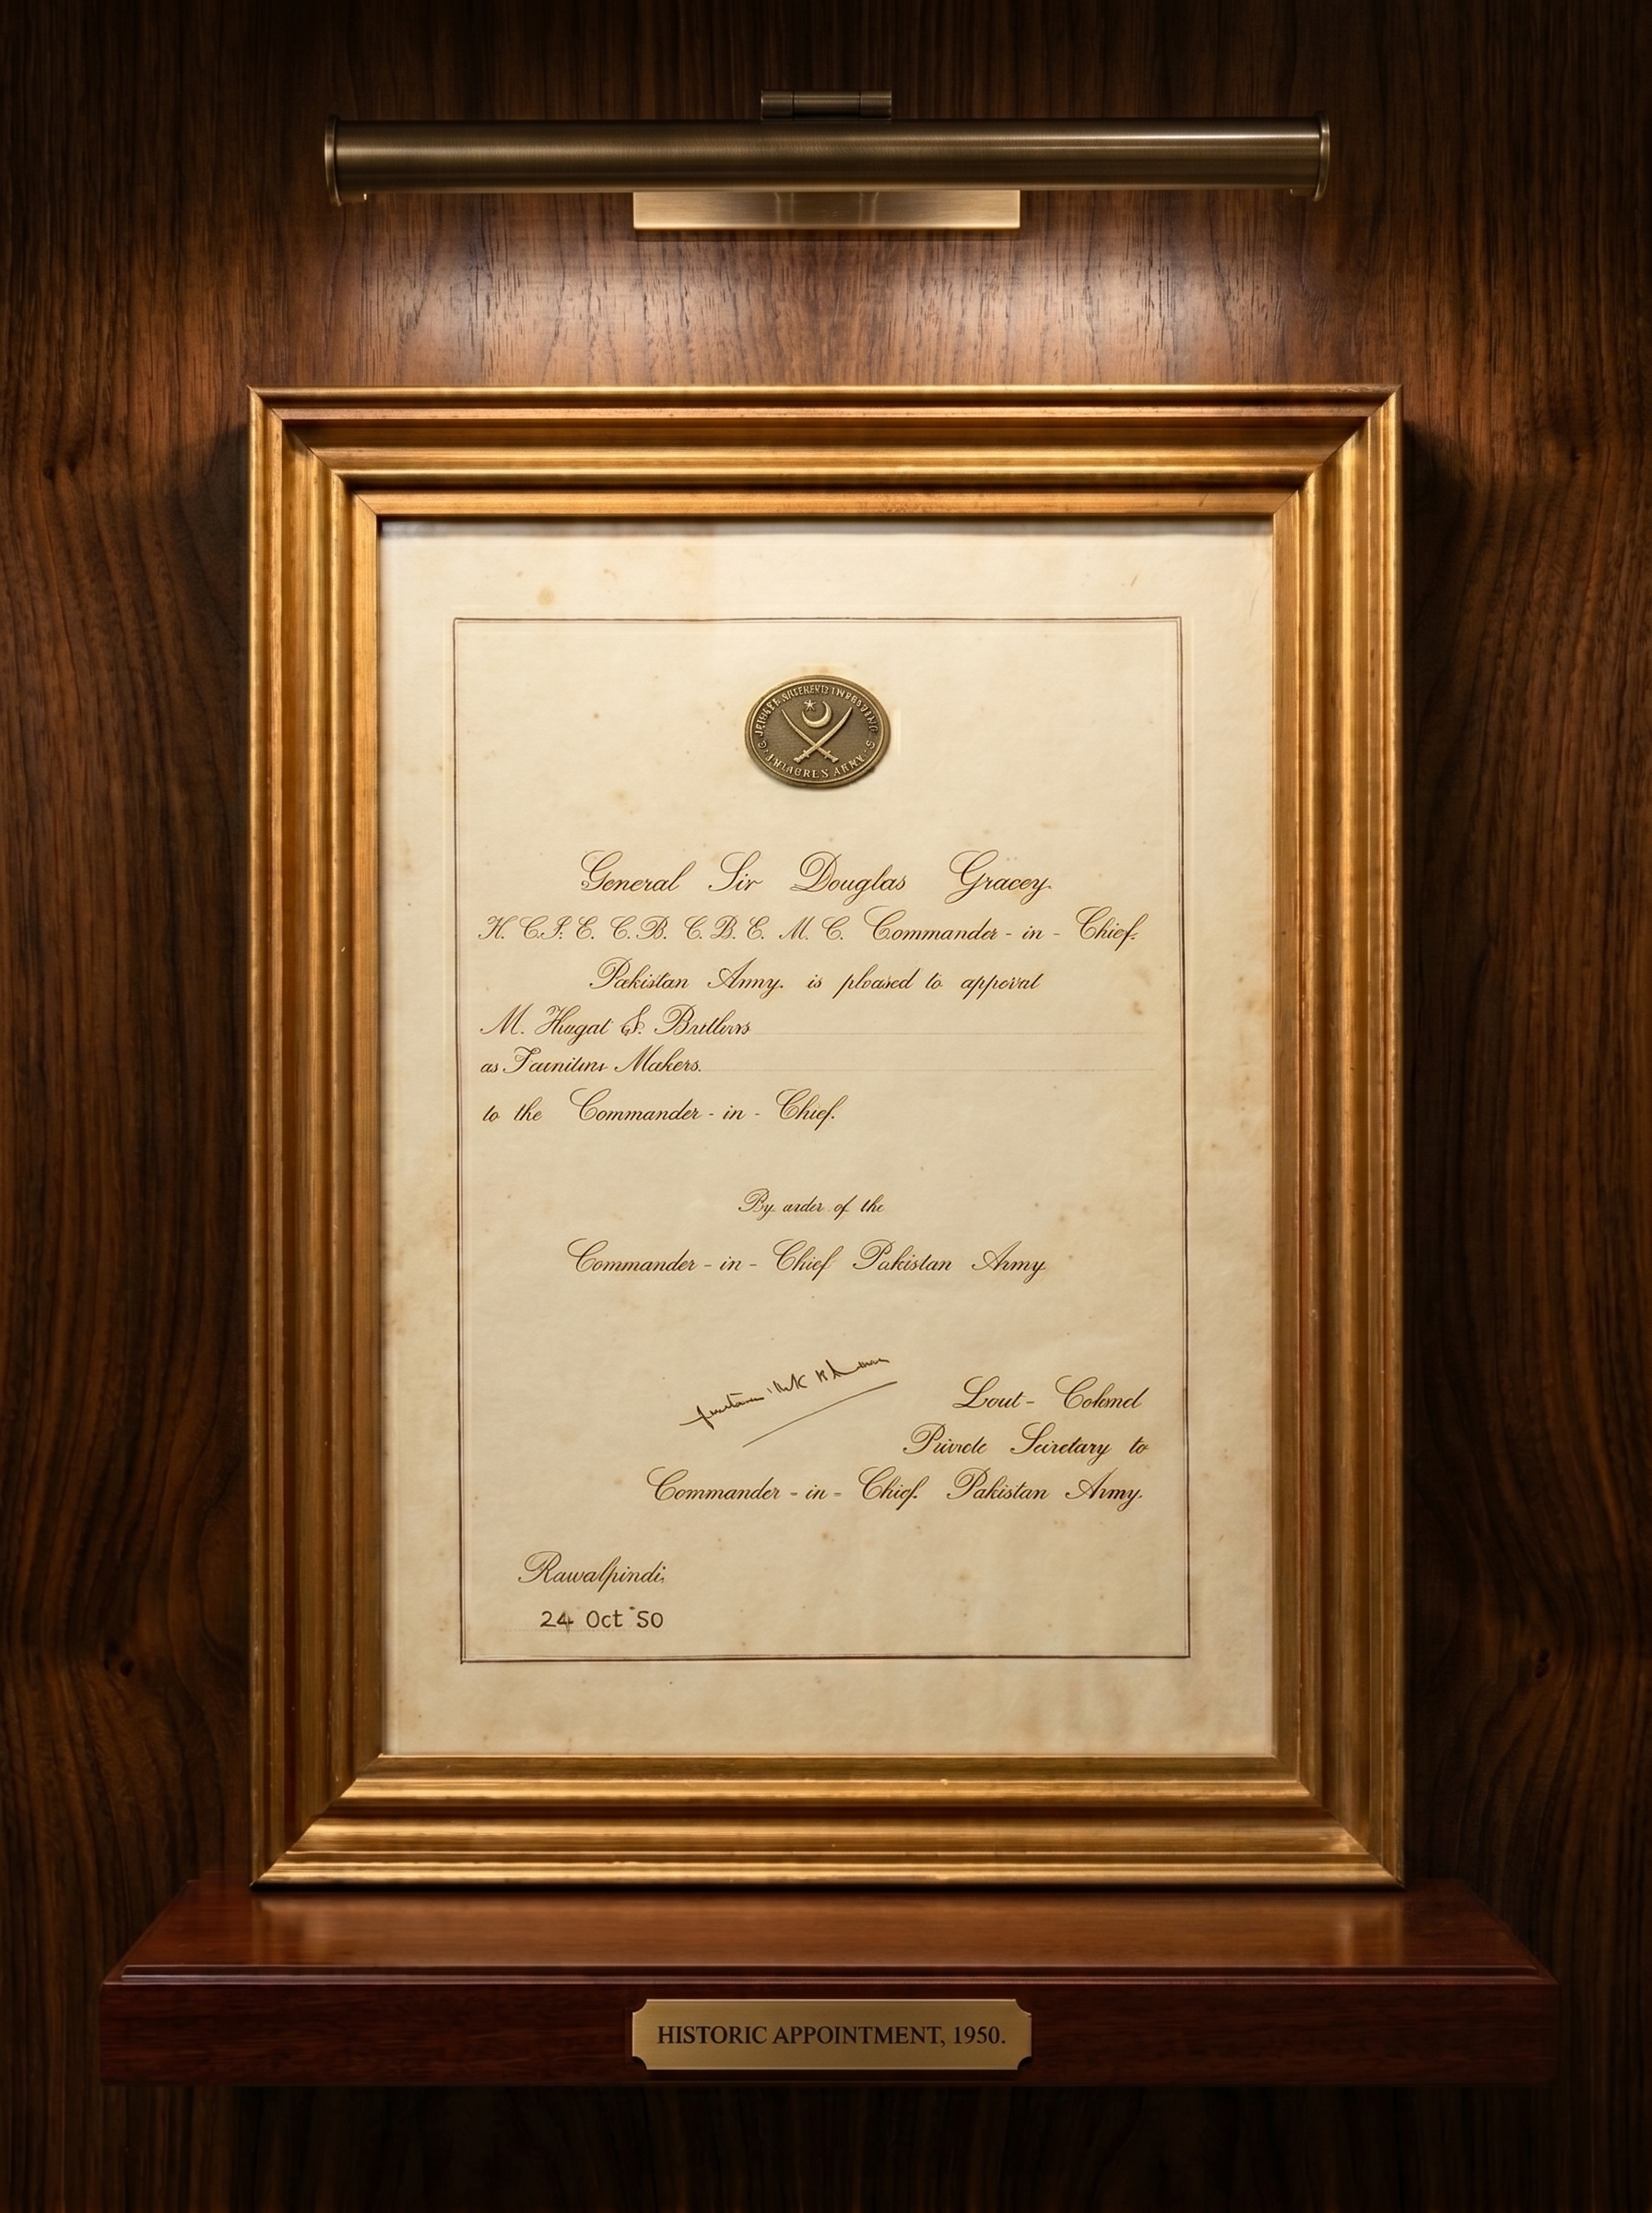 General Sir Douglas Gracey.
K. C.I. E. C. B. C. B. E. M. C. Commander - in - Chief.
Pakistan Army. is pleased to
M. Hugat & Brothers
as Makers.
to the Commander - in - Chief.
By order of the
Commander - in - Chief Pakistan Army
Lout - Colonel
Secretary to
Commander - in - Chief. Pakistan Army.
Rawalpindi.
24 Oct '50
HISTORIC APPOINTMENT, 1950.